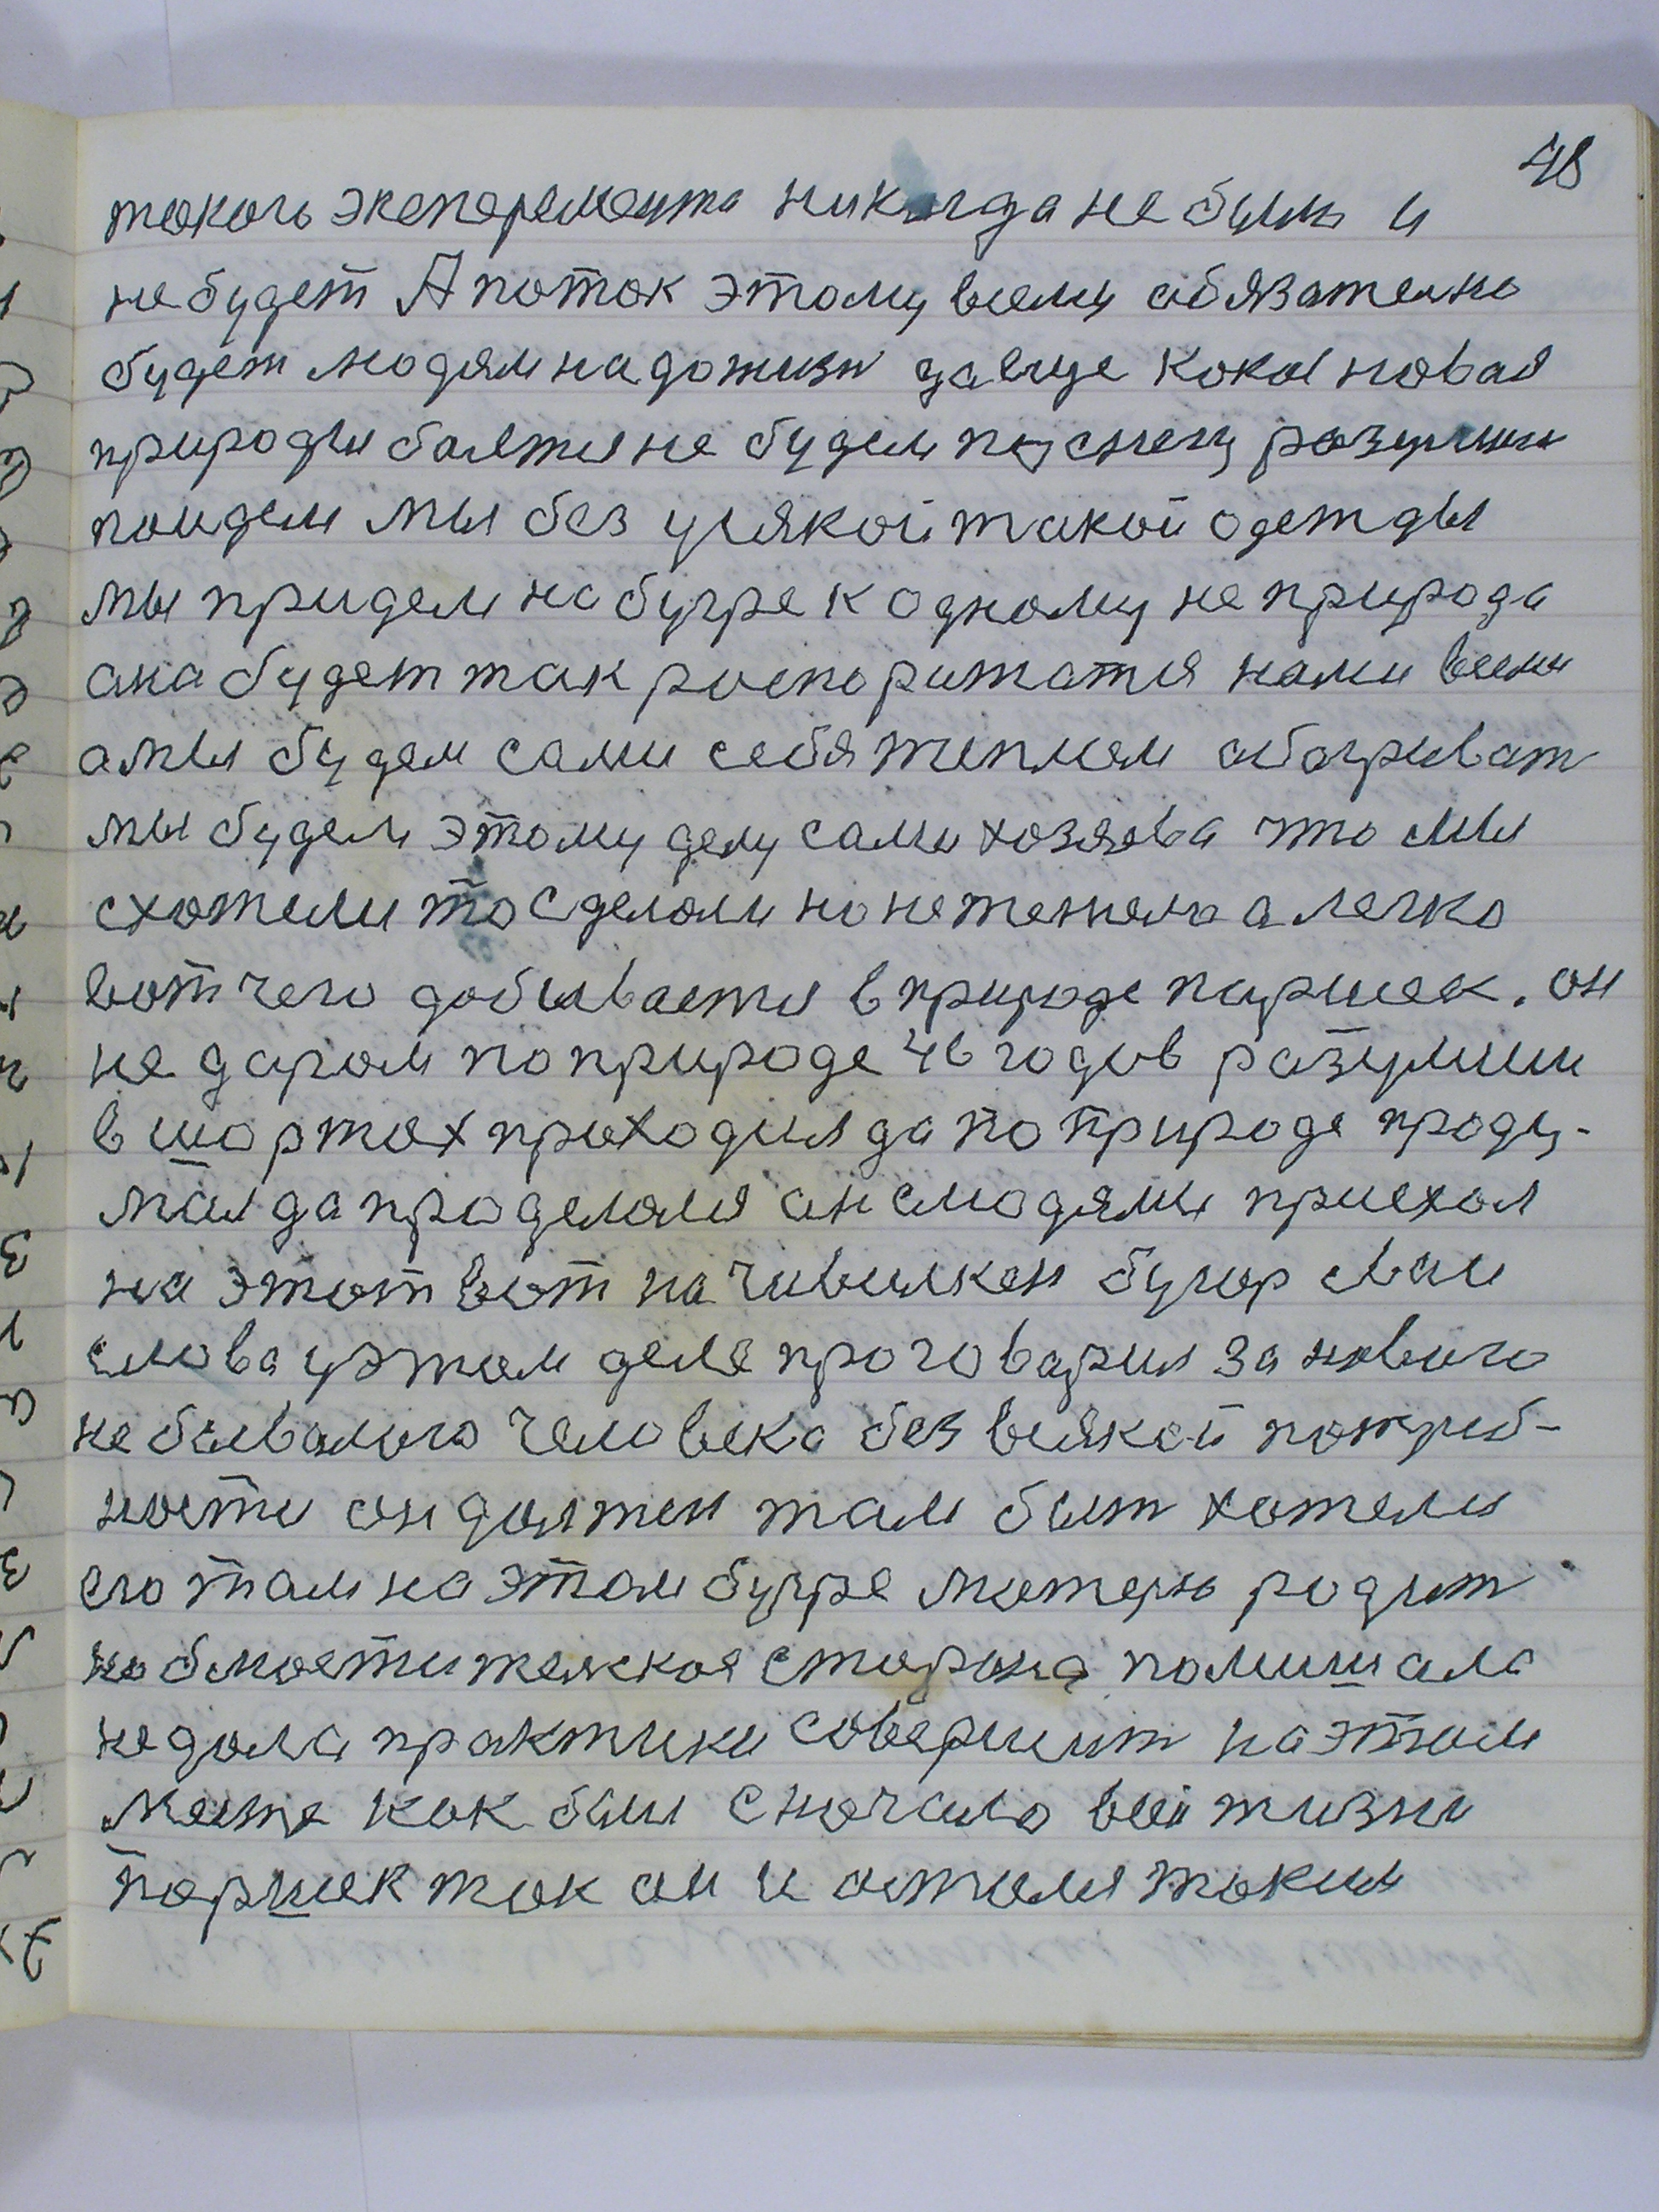 48
такогь эксперемента никогда не былы и
не будет А поток этому всему обязателно
будет людям надожизн да еще кокая новая
природы баятся не будем по снегу разумны
поидем мы без усякой такой одежды
мы придем на бугре к одному не природа
ана будет так роспорижатся нами всеми
а мы будем сами себя типлом абагриват
мы будем этому делу сами хозяева что мы
схотели то сделали но не тежело а легко
вот чего добивается в природе паршек. он
не даром по природе 46 годов разумыи
в шортах проходил да по природе проду-
мал да проделался он слюдямы приехал
на этот вот на чивилкен бугор сваи
слова у этом деле проговарил за нового
небывалого человека без всякой потриб-
ности он должен там быт хотели
его там на этом бугре матерь родит
но областижеяская сторона помишала
не дала практики совершит на этом
месте как был сначало всей жизни
паршек так он и остался таким